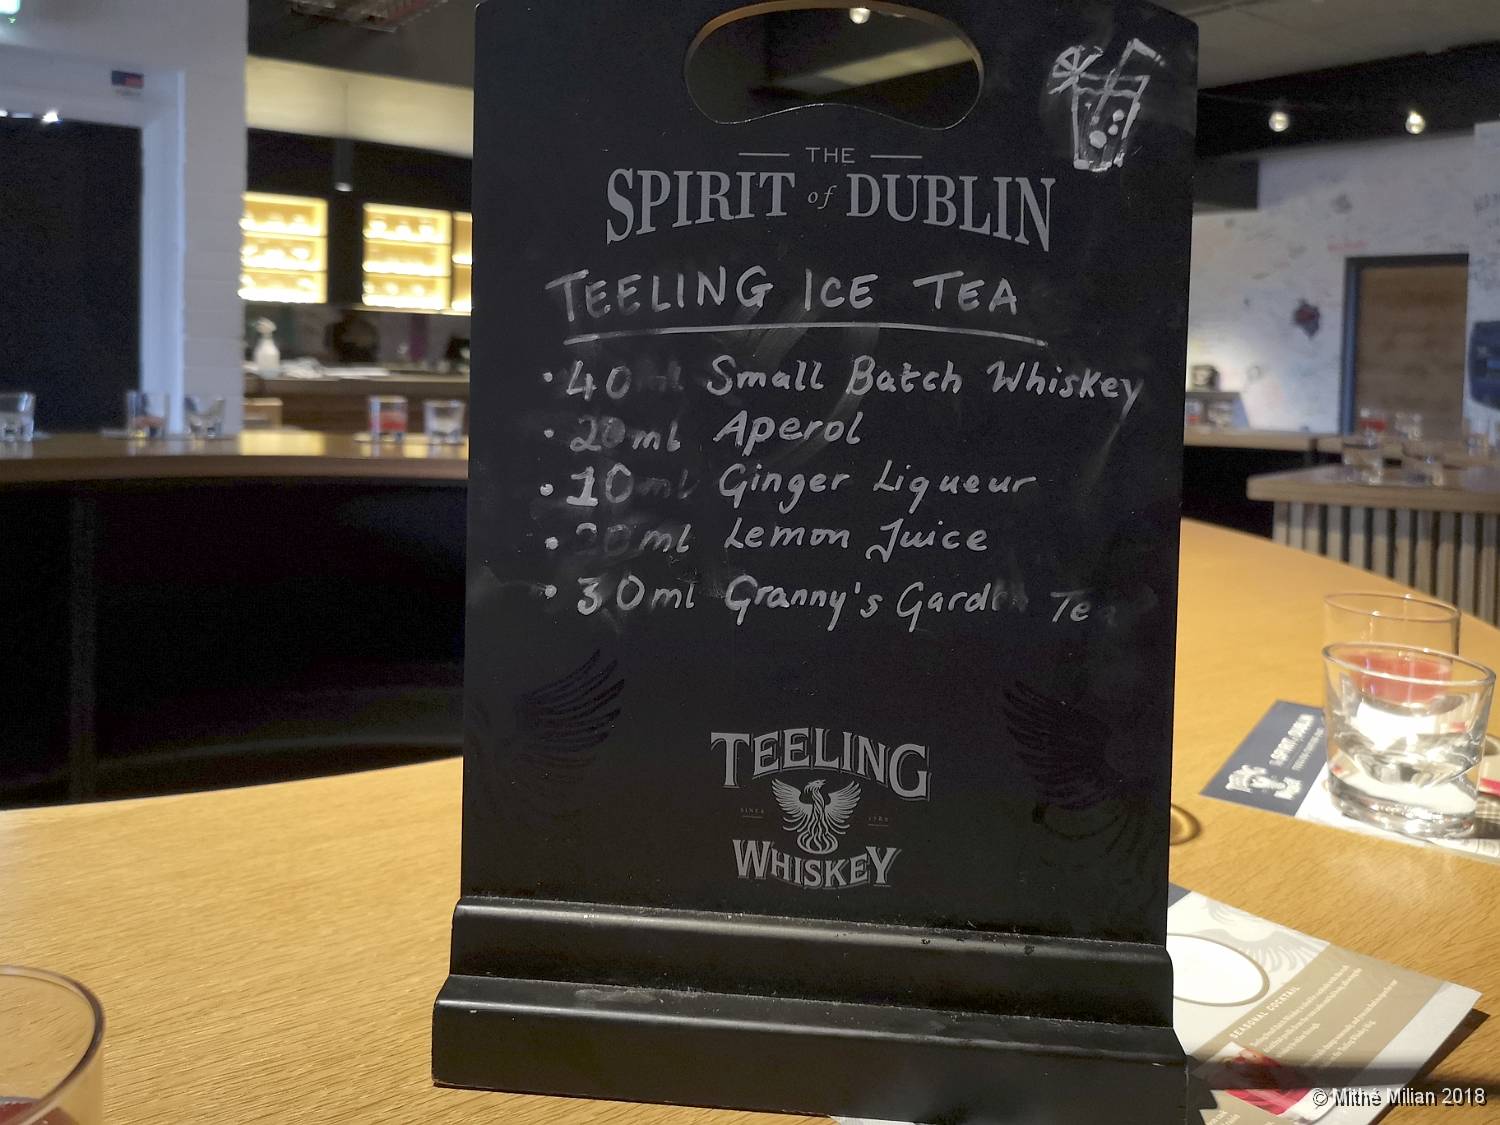 THE
SPIRIT of DUBLIN
TEELING ICE TEA
• 40ml Small Batch Whiskey
• 20ml Aperol
• 10ml Ginger Liqueur
• 20ml Lemon Juice
• 30ml Granny's Garden Tea
TEELING
SINCE 1782
WHISKEY
SPIRIT of DUBLIN
SEASONAL COCKTAIL
© Mithé Milian 2018